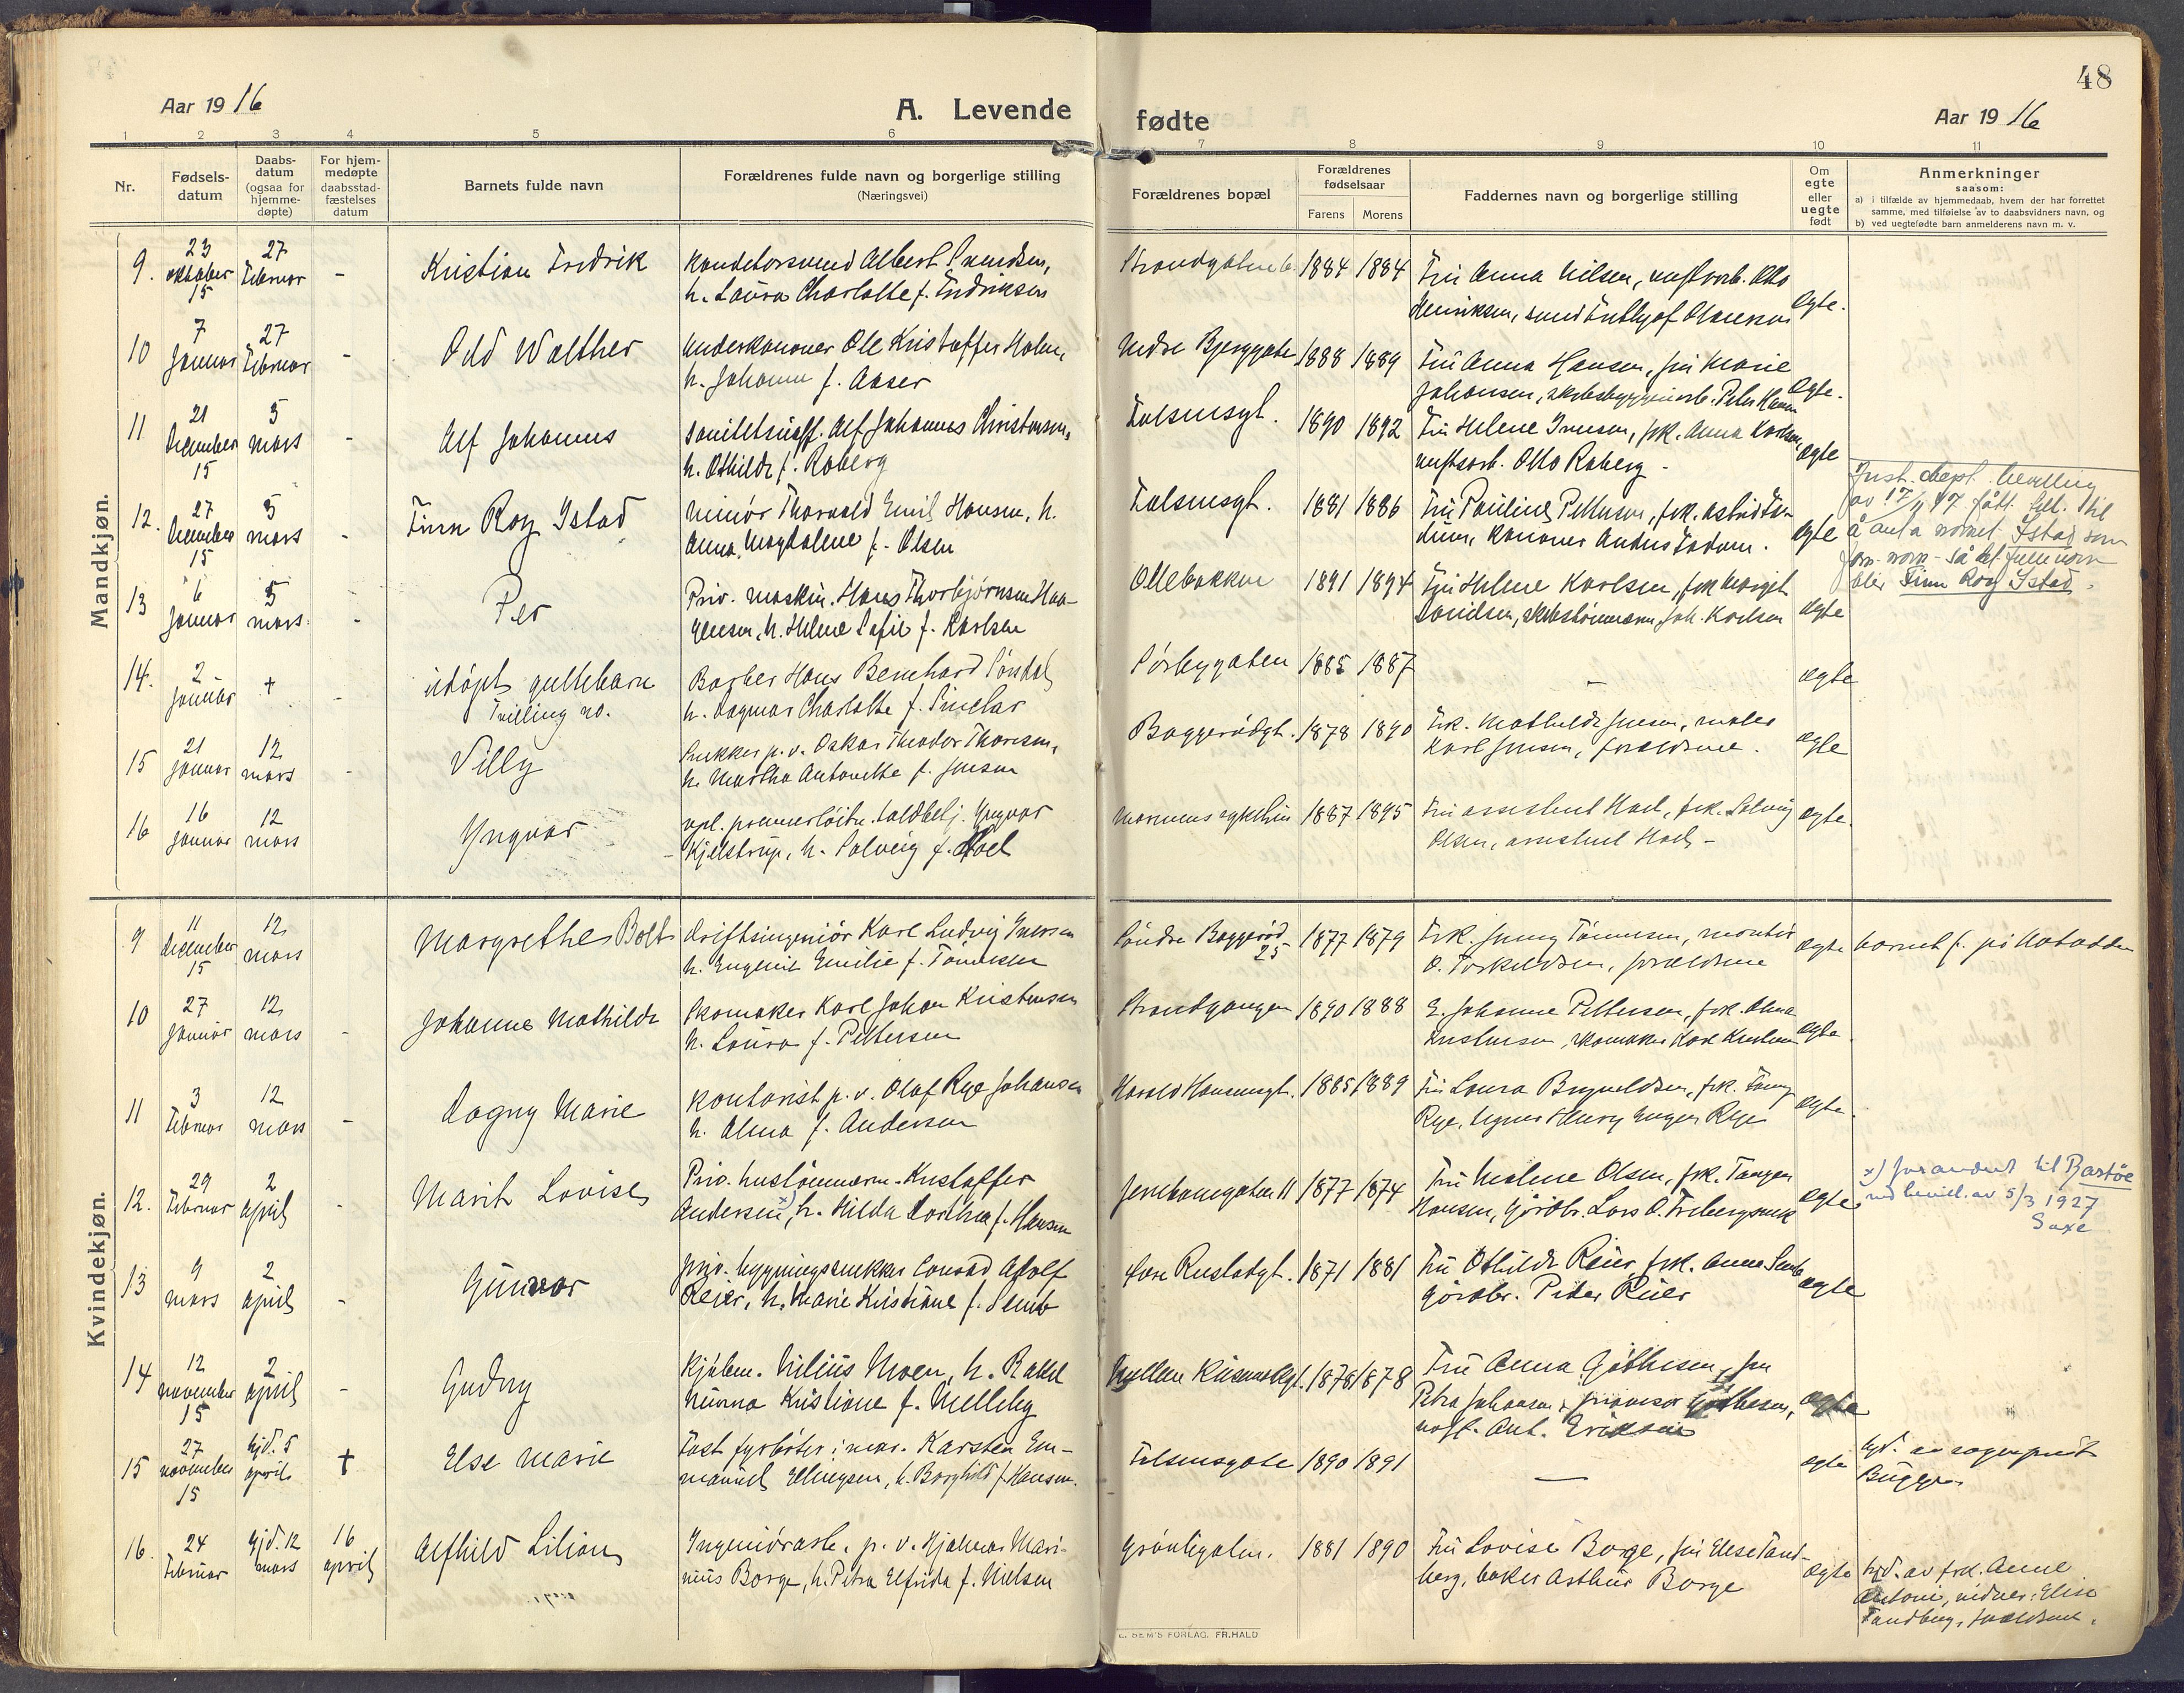 48
Aar 1916
A. Levende
fødte
Aar 1916
1 2 3 4 5 6 7 8 9 10 11
Nr.
Fødsels-
datum
Daabs-
datum
(ogsaa for
hjemme-
døpte)
For hjem-
medøpte
daabsstad-
fæstelses
datum
Barnets fulde navn
Forældrenes fulde navn og borgerlige stilling
(Næringsvei)
Forældrenes bopæl
Forældrenes
fødselsaar
Farens Morens
Faddernes navn og borgerlige stilling
Om
egte
eller
uegte
født
Anmerkninger
saasom:
a) i tilfælde av hjemmedaab, hvem der har forrettet
samme, med tilføielse av to daabsvidners navn, og
b) ved uegtefødte barn anmelderens navn m. v.
Mandkjøn.
9. 23 oktober 15 27 Februar - Kristian Fredrik
Konditorsvend Albert
h. Laura Charlotte f. Fredriksen
1884 1884 Fru Anna Nilsen, verftsarb. Otto
Henriksen, svend Olaussen egte.
10 7 Januar 27 Februar - Odd Walther
Underkanoner Ole Kristoffer Holm,
h. Johanne f. Aaser
Nedre Bjerggate 1888 1889 Fru Anna Hansen, fru Marie
Johansen, skibsbyggeriarb. Peter Hansen egte.
11 21 December 15 5 mars - Alf Johannes
Alf Johannes Christensen,
h. Othilde f. Raberg
1890 1892 Fru Helene Iversen, frk. Anna Karlsen,
verftsarb. Otto Raberg - egte
12. 27 December 15 5 mars - Finn Roy Istad
minør Thorvald Emil Hansen, h.
Anna Magdalene f. Olsen
1881 1886 Fru Pauline Pettersen, frk. Astrid
kanoner Anders egte
Just. dept. bevilling
av 17/11 47 fått till. til
å anta navnet Istad som
fam. navn - så det fulle navn
blir Finn Roy Istad.
13 6 Januar 5 mars. - Per
Priv. maskin. Hans Thorbjørnsen Haa-
gensen, h. Helene Sofie f. Karlsen
Ollebakken 1891 1894 Fru Helene Karlsen, frk. Margit
Danielsen, skibstømmerm. Joh. Karlsen egte
14. 2 Januar † - udøpt guttebarn
Tvilling no.
Barber Hans Bernhard
h. Dagmar Charlotte f. Sinclar
Sørbygaten 1885 1887 - egte
15 21 Januar 12 mars - Villy
Snekker p.v. Oskar Theodor Thoresen,
h. Martha Antonette f. Jensen
Baggerødgt. 1878 1890 Frk. Mathilde Jensen, maler
Karl Jensen, forældrene. egte
16 16 Januar 12 mars Yngvar
vpl. premierløitn. toldbetj. Yngvar
Kjelstrup, h. Solveig f. Hoel
Marinens sykehus 1887 1895 Fru assistent Hoel, frk. Solveig
Olsen, assistent Hoel - egte.
Kvindekjøn.
9 11 December 15 12 mars Margrethe Bolt
Driftsingeniör Karl Ludvig Iversen
h. Eugenie Emilie f. Tönnessen
Söndre Baggerød 25 1877 1879 Frk. Jenny Tönnessen, montör
O. Torkildsen, forældrene egte barnet f. på Notodden
10 27 Januar 12 mars - Johanne Mathilde
Skomaker Karl Johan Kristensen
h. Laura f. Pettersen
Strandgangen 1890 1888 E. Johanne Pettersen, frk. Alma
Kristensen, skomaker Karl Kristensen egte.
11 3 Februar 12 mars - Dagny Marie
Kontorist p.v. Olaf Rye Johansen
h. Alma f. Andersen
Harald Hansensgt. 1885 1889 Fru Laura Bryneldsen, frk. Fanny
Rye, Henry Eugen Rye egte.
12. 29 Februar 2 april - Marit Lovise
Priv. hustömmerm. Kristoffer
Andersen x), h. Hilda Dorthea f. Hansen
Jernbanegaten 11 1877 1874 Fru Malene Olsen, frk. Tangen
Hansen, gördbr. Lars O. egte.
x) forandret til Bastöe
ved bevill. av 5/3 1927
Saxe
13 9 mars 2 april - Gunvor
priv. bygningssnekker Conrad Adolf
Reier, h. Marie Kristiane f. Semb
1871 1881 Fru Othilde Reier, frk. Anna Semb
gårdbr. Peder Reier egte
14 12 november 15 2 april - Gudny
Kjöbm. Nilius Moen, h. Rakel
Minna Kristiane f. Melleby
1878 1878 Fru Anna Gåthesen, fru
Petra Johansen, Gåthesen,
Ant. Eriksen egte
15 27 november 15 hjd. 5 april † Else Marie
Fast fyrböter i mar. Karsten Em-
manuel Ellingsen, h. Borghild f. Hansen.
1890 1891 - egte
hjd. av sogneprest
Bugge
16. 24 Februar hjd. 12 mars 16 april Alfhild Lilian
Ingeniörass. p.v. Hjalmar Mari-
nius Borge, h. Petra Elfrida f. Nielsen
Grönligaten. 1881 1890 Fru Lovise Borge, fru Elise Tand-
berg, baker Arthur Borge egte
hjd. av frk. Anne
Antoni, vidner: Elise
Tandberg, forældrene.
E. SEM'S FORLAG. FR.HALD